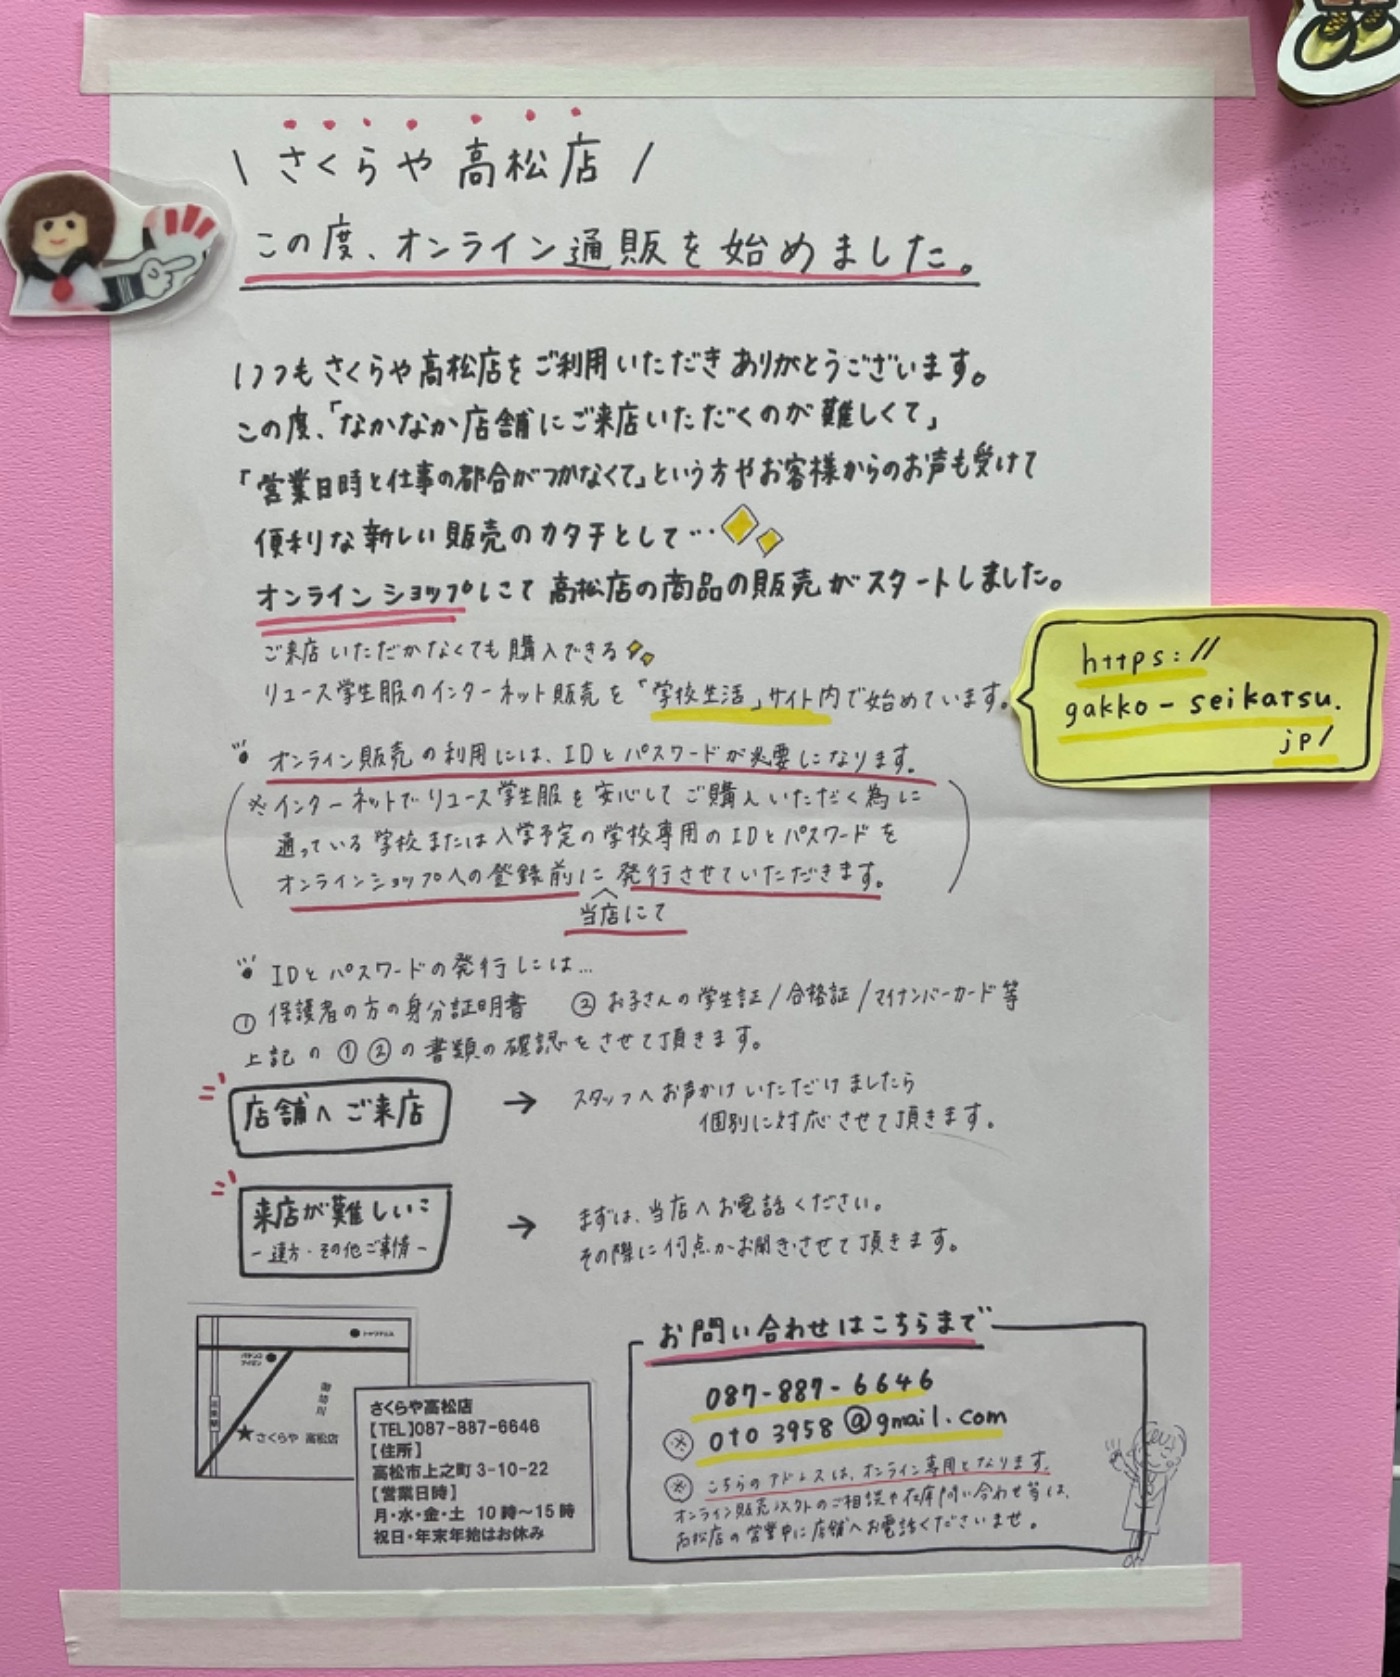 さくらや 高松店
この度、オンライン通販を始めました。
いつもさくらや高松店をご利用いただきありがとうございます。
この度、「なかなか店舗にご来店いただくのが難しくて」
「営業日時と仕事の都合がつかなくて」という方やお客様からのお声も受けて
便利な新しい販売のカタチとして…
オンラインショップにて高松店の商品の販売がスタートしました。
ご来店いただかなくても購入できる
リユース学生服のインターネット販売を「学校生活」サイト内で始めています。
https://
gakko-seikatsu.
jp/
オンライン販売の利用には、IDとパスワードが必要になります。
※インターネットでリユース学生服を安心してご購入いただく為に
通っている学校または入学予定の学校専用のIDとパスワードを
オンラインショップへの登録前に発行させていただきます。
当店にて
IDとパスワードの発行には…
①保護者の方の身分証明書 ②お子さんの学生証/合格証/マイナンバーカード等
上記の①②の書類の確認をさせて頂きます。
店舗へご来店 → スタッフへお声かけいただけましたら
個別に対応させて頂きます。
来店が難しい → まずは、当店へお電話ください。
-遠方・その他ご事情- その際に何点かお聞きさせて頂きます。
パチンコ
さくらや 高松店
さくらや高松店
【TEL】087-887-6646
【住所】
高松市上之町3-10-22
【営業日時】
月・水・金・土 10時〜15時
祝日・年末年始はお休み
お問い合わせはこちらまで
087-887-6646
※ oto3958@gmail.com
※ こちらのアドレスは、オンライン専用となります。
オンライン販売以外のご相談や在庫問い合わせ等は、
高松店の営業中に店舗へお電話くださいませ。